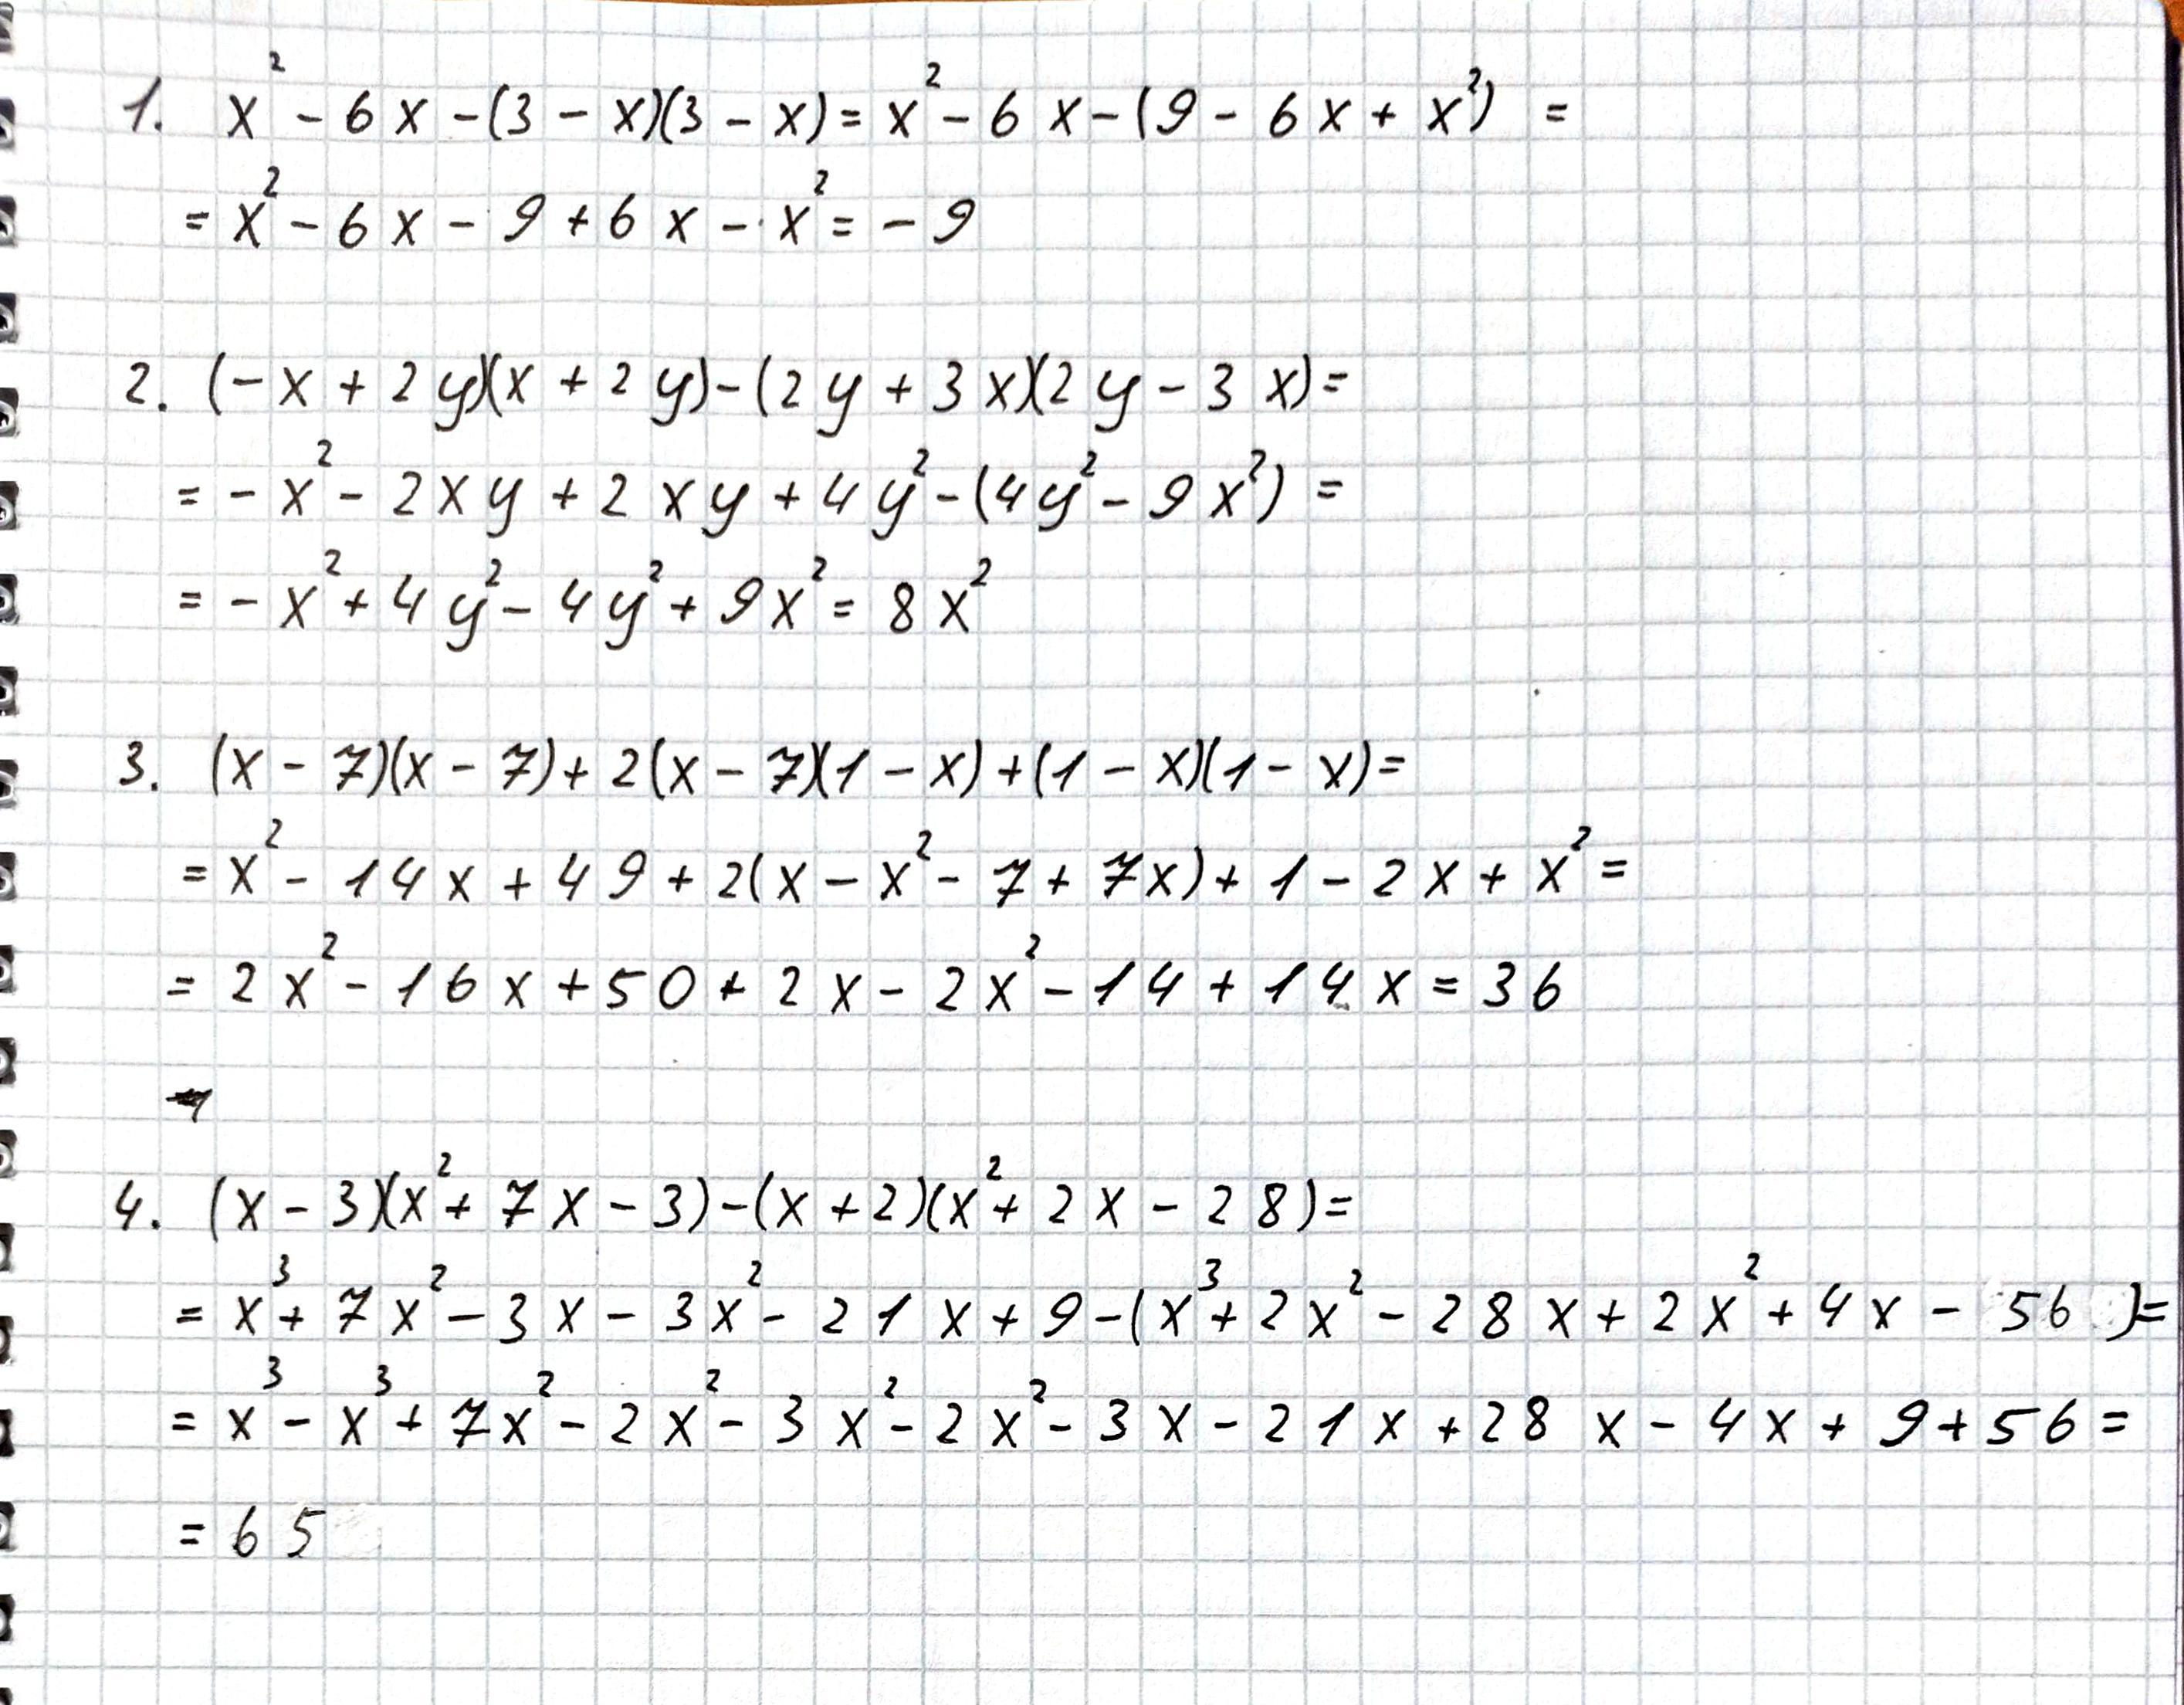 1. x² - 6x - (3 - x)(3 - x) = x² - 6x - (9 - 6x + x²) =
= x² - 6x - 9 + 6x - x² = - 9
2. (- x + 2y)(x + 2y) - (2y + 3x)(2y - 3x) =
= - x² - 2xy + 2xy + 4y² - (4y² - 9x²) =
= - x² + 4y² - 4y² + 9x² = 8x²
3. (x - 7)(x - 7) + 2(x - 7)(1 - x) + (1 - x)(1 - x) =
= x² - 14x + 49 + 2(x - x² - 7 + 7x) + 1 - 2x + x² =
= 2x² - 16x + 50 + 2x - 2x² - 14 + 14x = 36
4. (x - 3)(x² + 7x - 3) - (x + 2)(x² + 2x - 28) =
= x³ + 7x² - 3x - 3x² - 21x + 9 - (x³ + 2x² - 28x + 2x² + 4x - 56) =
= x³ - x³ + 7x² - 2x² - 3x² - 2x² - 3x - 21x + 28x - 4x + 9 + 56 =
= 65